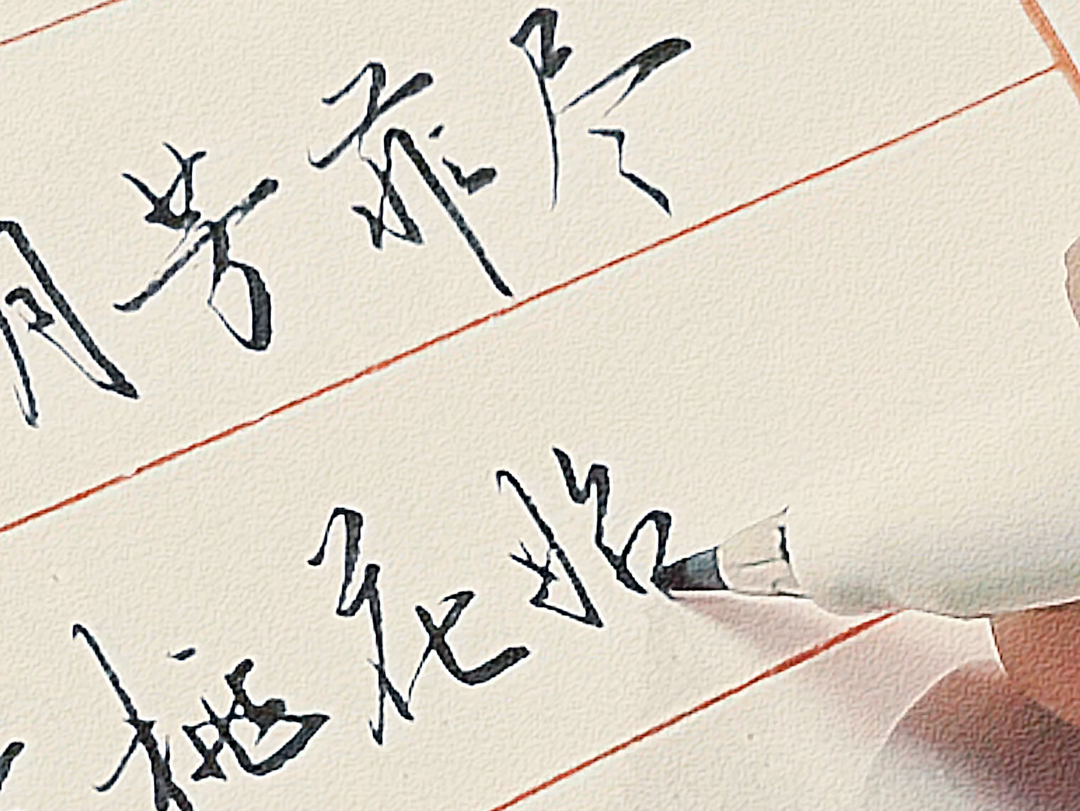 月芳菲尽
桃花始